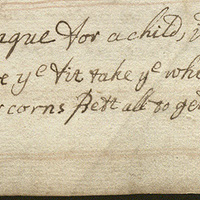 ague for a child,
ye fit take ye
corns Pett all to ge